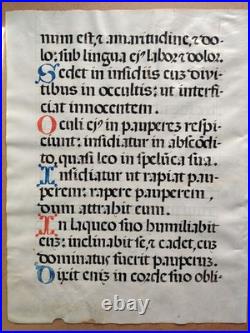 num est, & amaritudine, & do
lo: sub lingua ejꝰ labor & dolor.
Sedet in insidiis cuʒ divi
tibus in occultis: ut interfi
ciat innocentem.
Oculi ejꝰ in paupereʒ respi
ciunt: insidiatur in abscōdi
to, quasi leo in spelūca sua.
Insidiatur ut rapiat pau
perem: rapere pauperem,
dum attrahit eum.
In laqueo suo humiliabit
euʒ: inclinabit se, & cadet, cuʒ
dominatus fuerit pauperuʒ.
Dixit eniʒ in corde suo obli-